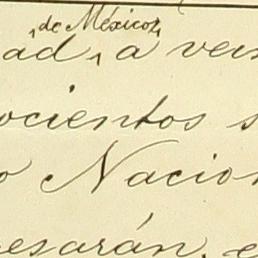 de México,
ad, a vei
ocientos s
o Nacion
esarán, e